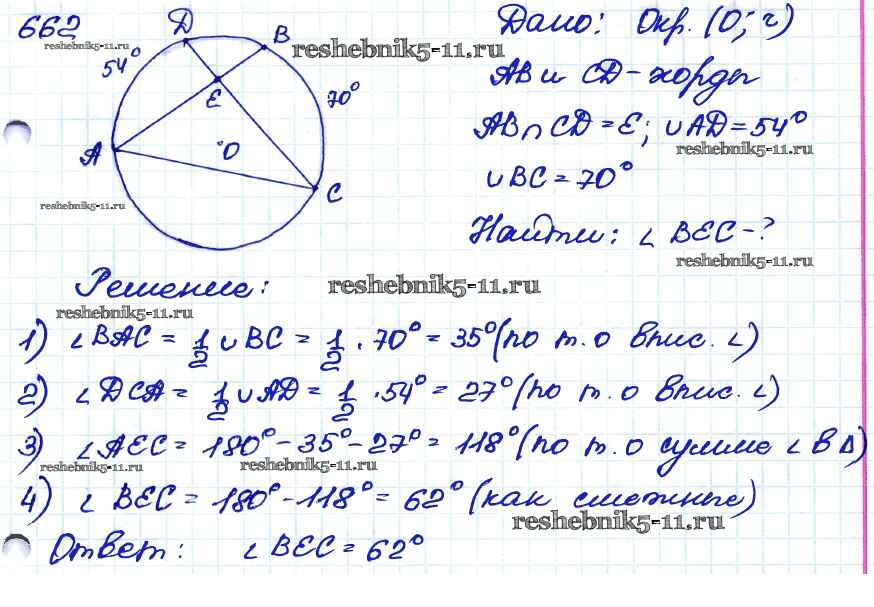 662
reshebnik5-11.ru
D
B
reshebnik5-11.ru
54°
70°
E
A
O
C
reshebnik5-11.ru
Дано: Окр. (O; r)
AB и CD - хорды
AB ∩ CD = E; ∪AD = 54°
reshebnik5-11.ru
∪BC = 70°
Найти: ∠ BEC - ?
reshebnik5-11.ru
Решение:
reshebnik5-11.ru
reshebnik5-11.ru
1) ∠BAC = 1/2 ∪ BC = 1/2 · 70° = 35° (по т. о впис. ∠)
2) ∠DCA = 1/2 ∪AD = 1/2 · 54° = 27° (по т. о впис. ∠)
3) ∠AEC = 180° - 35° - 27° = 118° (по т. о сумме ∠ в Δ)
reshebnik5-11.ru
reshebnik5-11.ru
4) ∠ BEC = 180° - 118° = 62° (как смежные)
reshebnik5-11.ru
Ответ: ∠BEC = 62°